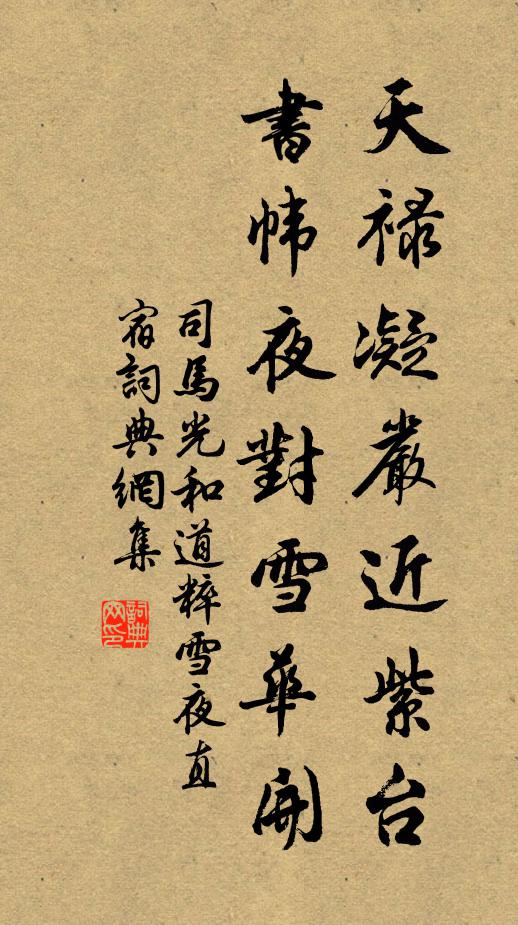 天祿凝嚴近紫台
書幃夜對雪華開
司馬光和道粹雪夜直
宿詞典網集
詞典
網印